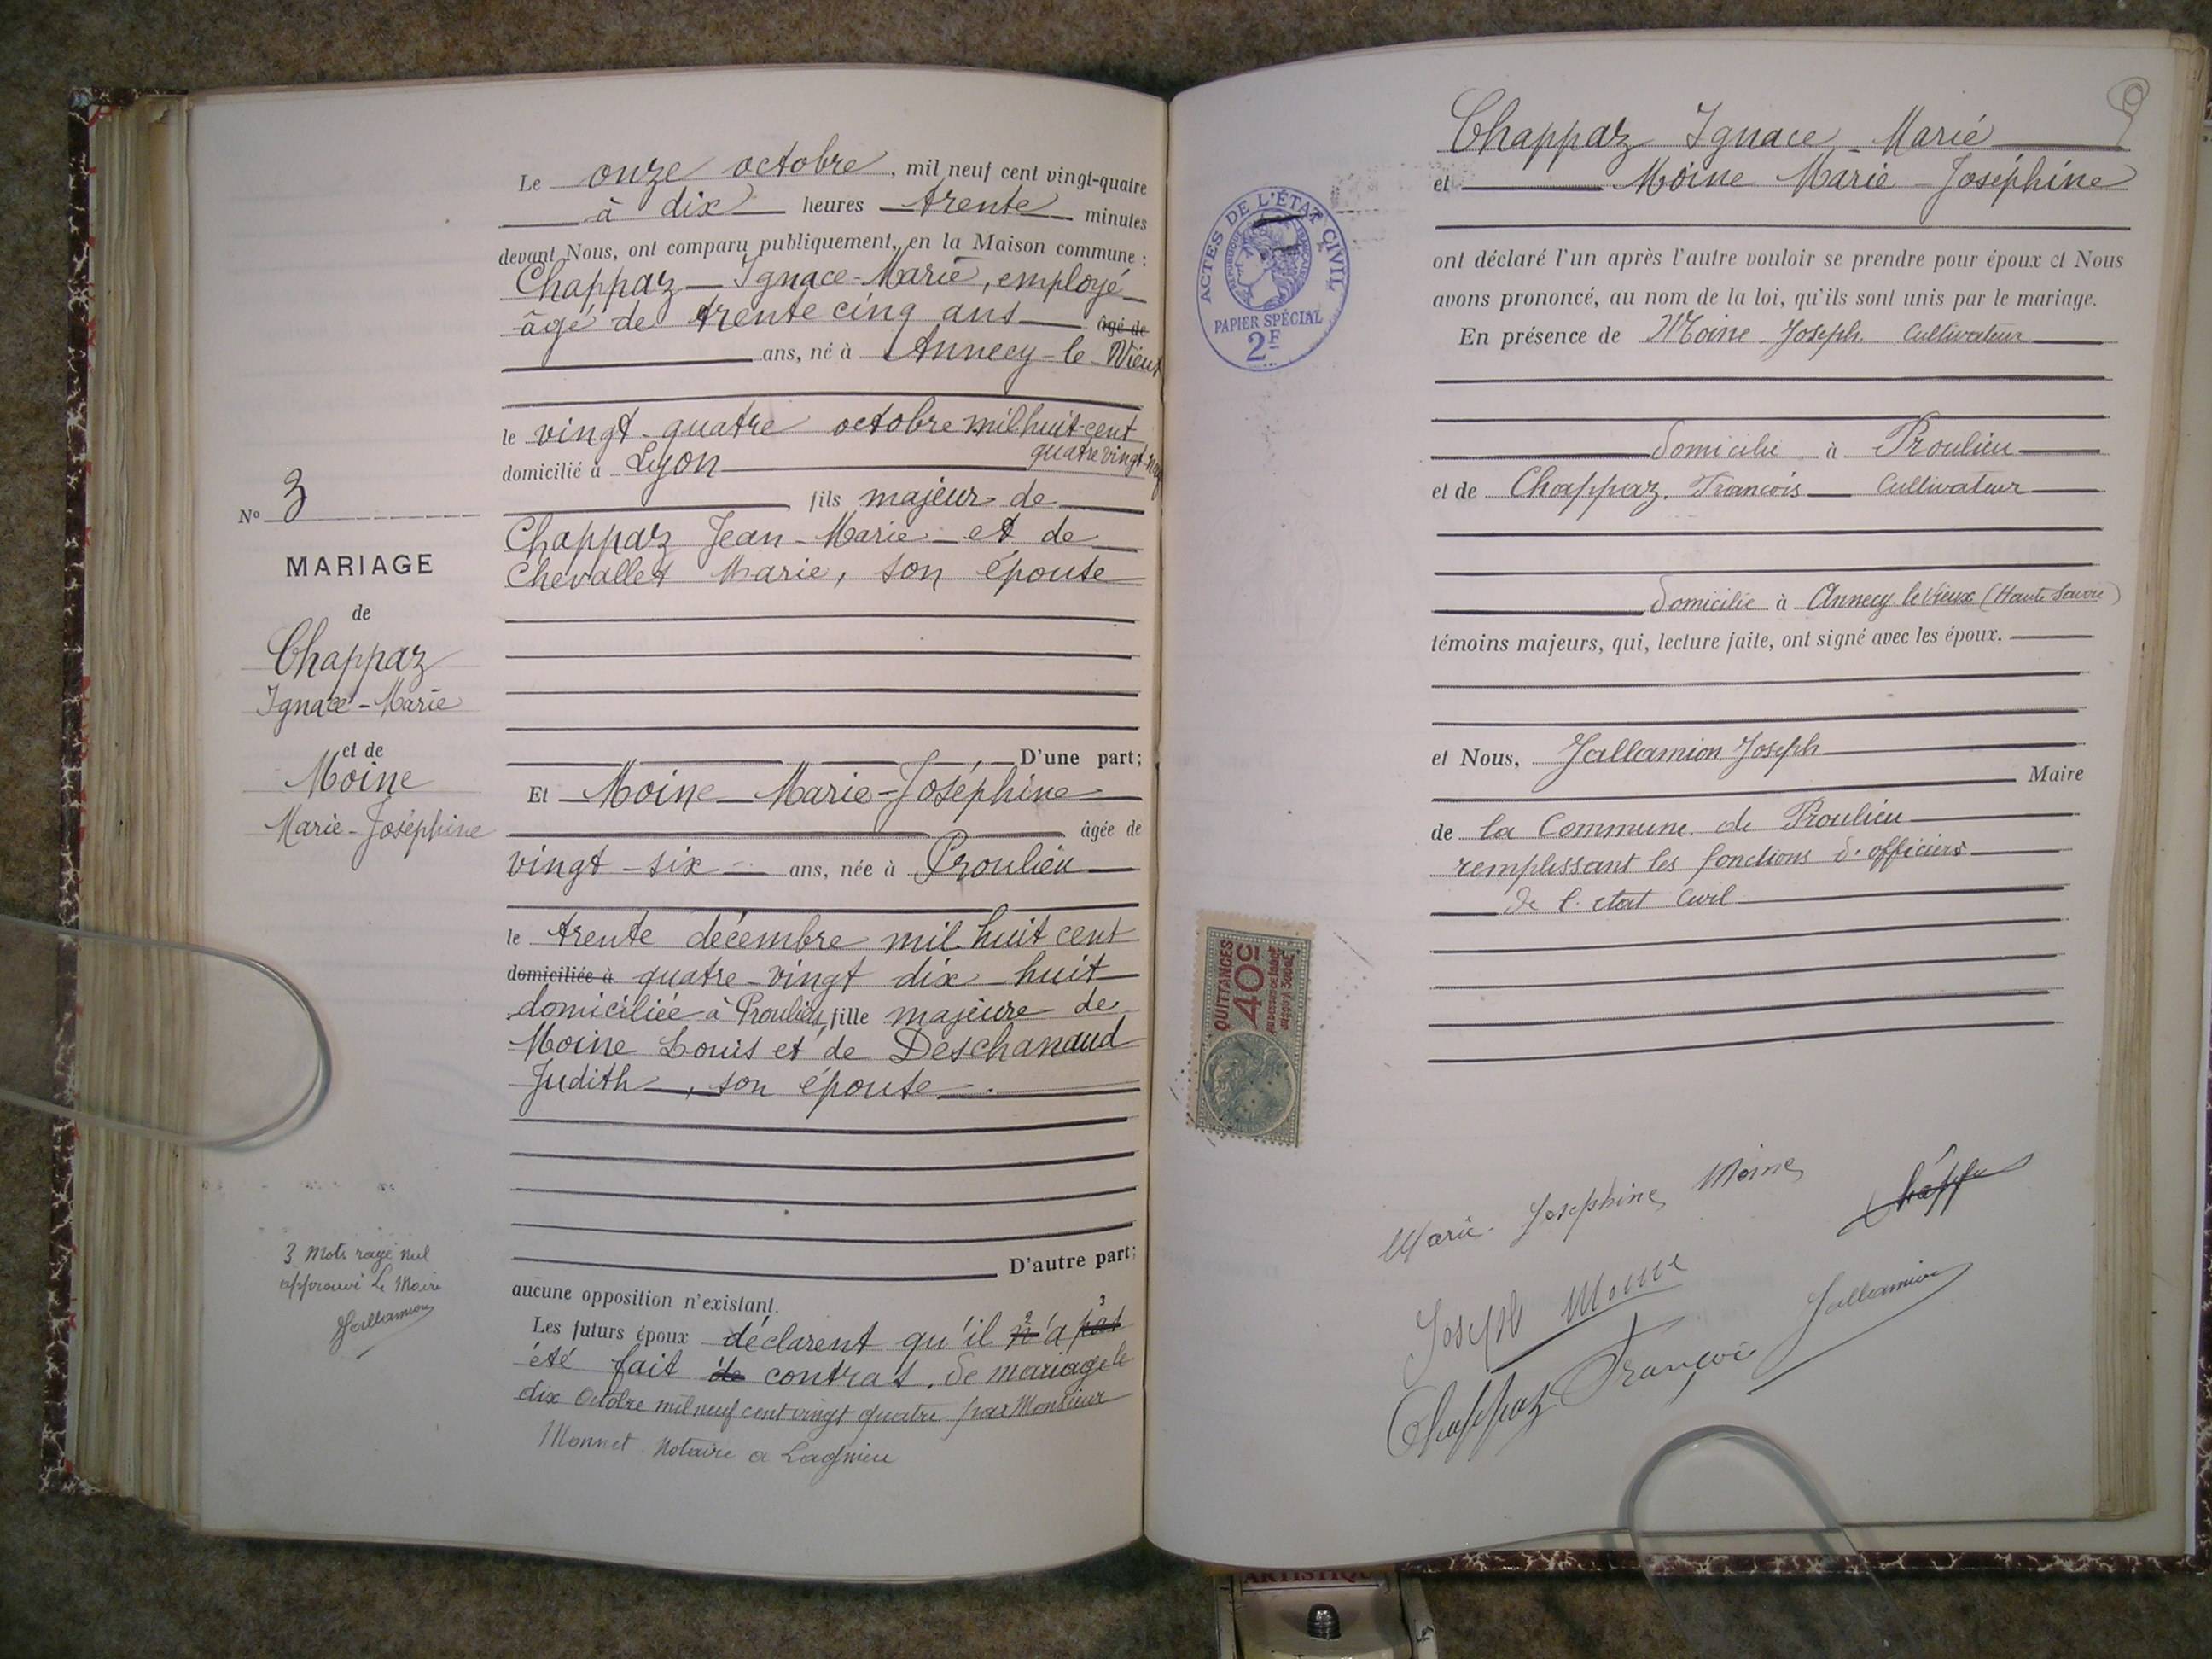 Le onze octobre, mil neuf cent vingt-quatre
à dix heures trente minutes
devant Nous, ont comparu publiquement, en la Maison commune :
Chappaz Ignace-Marie, employé
âgé de trente cinq ans âgé de
ans, né à Annecy-le-Vieux
le vingt-quatre octobre mil huit-cent
quatre vingt-neuf
domicilié à Lyon
fils majeur de
Chappaz Jean-Marie et de
Chevallet Marie, son épouse
D'une part;
Et Moine Marie-Joséphine
âgée de
vingt-six ans, née à Proulieu
le trente décembre mil huit cent
domiciliée à quatre-vingt dix-huit
domiciliée à Proulieu, fille majeure de
Moine Louis et de Deschanaud
Judith, son épouse
D'autre part;
aucune opposition n'existant.
Les futurs époux déclarent qu'il n'a pas
été fait de contrat. de mariage le
dix octobre mil neuf cent vingt quatre par Monsieur
Monnet Notaire a Lagnieu
No 3
MARIAGE
de
Chappaz
Ignace-Marie
et de
Moine
Marie-Joséphine
3 mots rayé nul
approuvé Le Maire
Jallamion
Chappaz Ignace-Marie
et Moine Marie-Joséphine
ont déclaré l'un après l'autre vouloir se prendre pour époux et Nous
avons prononcé, au nom de la loi, qu'ils sont unis par le mariage.
En présence de Moine Joseph Cultivateur
domicilié à Proulieu
et de Chappaz. Francois Cultivateur
domicilié à Annecy le Vieux (Haute Savoie)
témoins majeurs, qui, lecture faite, ont signé avec les époux.
et Nous, Jallamion Joseph
Maire
de la Commune de Proulieu
remplissant les fonctions d'officiers
de l'etat Civil
Marie-Josephine Moine
Joseph Moine
Jallamion
Chappaz François
ACTES DE L'ÉTAT CIVIL
RÉPUBLIQUE FRANÇAISE
PAPIER SPÉCIAL
2F
QUITTANCES
40c
ARTISTIQU